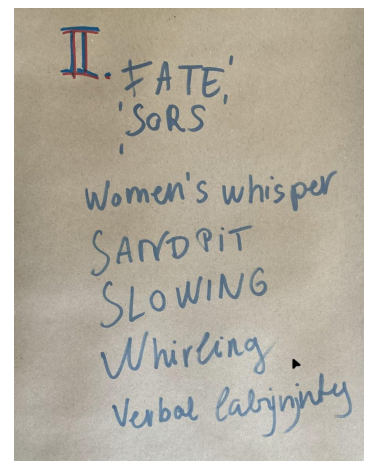 II. 'FATE'
'SORS'
Women's whisper
SANDPIT
SLOWING
Whirling
Verbal